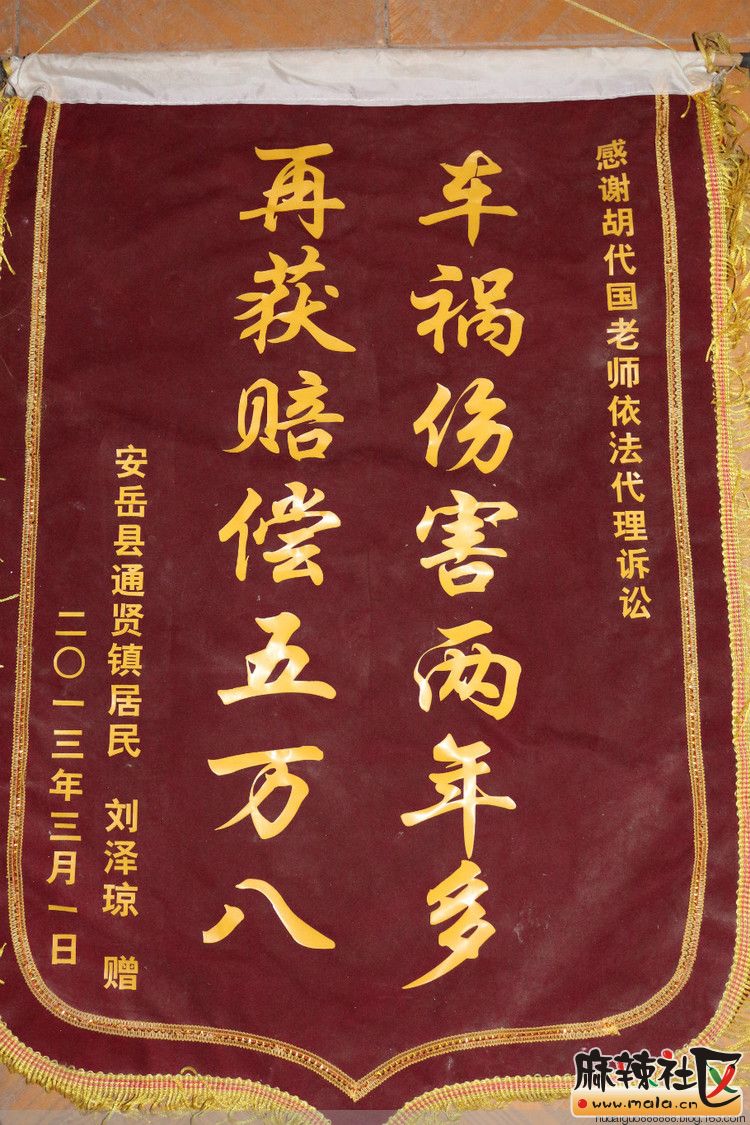 感谢胡代国老师依法代理诉讼
车祸伤害两年多
再获赔偿五万八
安岳县通贤镇居民 刘泽琼 赠
二〇一三年三月一日
麻辣社区
www.mala.cn
hudaiguo888888.blog.163.com